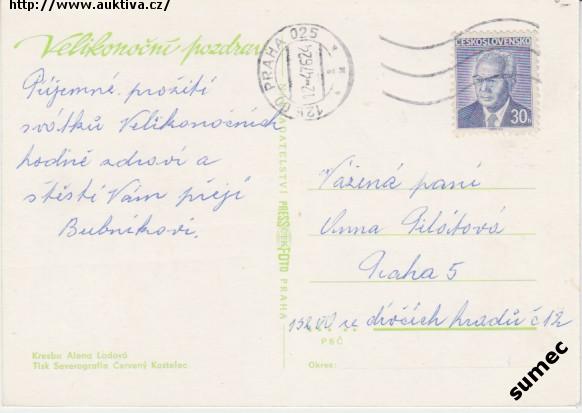 http://www.auktiva.cz/
Velikonoční pozdrav
Příjemné prožití
svátků Velikonočních
hodně zdraví a
štěstí Vám přejí
Bubníkovi.
Kresba Alena Ladová
Tisk Severografie Červený Kostelec
NAKLADATELSTVÍ PRESSFOTO PRAHA
PRAHA 025
ČESKOSLOVENSKO
30h
Vážená paní
Anna Pilátová
Praha 5
152 00 ve dívčích hradů č 12
PSČ
Okres:
sumec